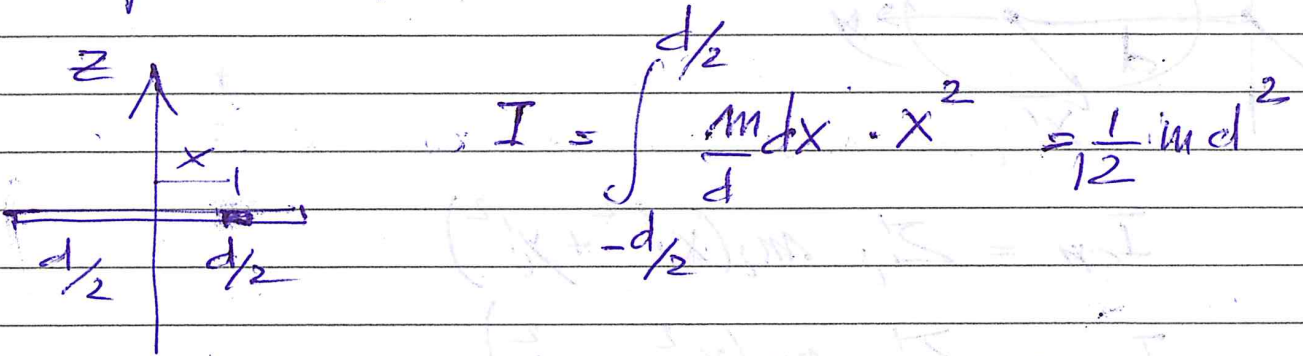 Z
x
d/2 d/2
I = ∫_{-d/2}^{d/2} m/d dx · x² = 1/12 m d²